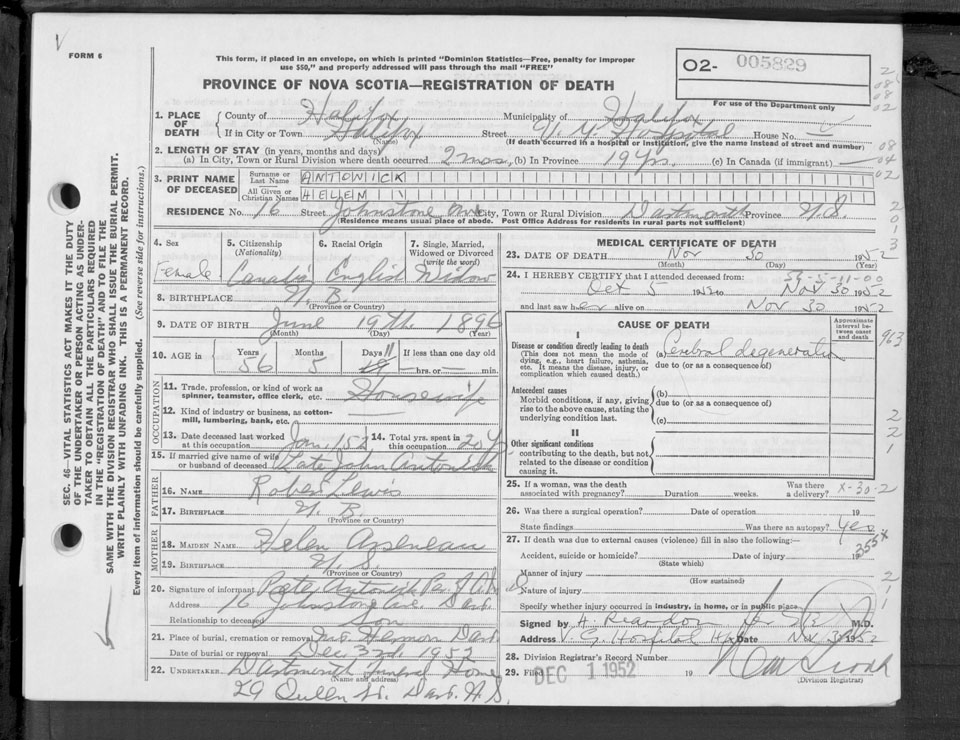 FORM 6
This form, if placed in an envelope, on which is printed "Dominion Statistics—Free, penalty for improper
use $50," and properly addressed will pass through the mail "FREE"
PROVINCE OF NOVA SCOTIA—REGISTRATION OF DEATH
O2- 005829
For use of the Department only
1. PLACE OF DEATH
County of Halifax Municipality of Halifax
If in City or Town Halifax Street V. G. Hospital House No.
(Name) (If death occurred in a hospital or institution, give the name instead of street and number)
2. LENGTH OF STAY (in years, months and days)
(a) In City, Town or Rural Division where death occurred 2 mos. (b) In Province 19 Yrs. (c) In Canada (if immigrant) —
3. PRINT NAME OF DECEASED
Surname or Last Name ANTOWICK
All Given or Christian Names HELEN
RESIDENCE No. 16 Street Johnstone Ave City, Town or Rural Division Dartmouth Province N.S.
(Residence means usual place of abode. Post Office Address for residents in rural parts not sufficient)
4. Sex Female
5. Citizenship (Nationality)
6. Racial Origin English
7. Single, Married, Widowed or Divorced (write the word) Widow
8. BIRTHPLACE N. B.
(Province or Country)
9. DATE OF BIRTH June 19th 1896
(Month) (Day) (Year)
10. AGE in Years 56 Months 5 Days 11 If less than one day old
— hrs. or — min.
OCCUPATION
11. Trade, profession, or kind of work as spinner, teamster, office clerk, etc. Housewife
12. Kind of industry or business, as cotton-mill, lumbering, bank, etc.
13. Date deceased last worked at this occupation Jan. 1/52 14. Total yrs. spent in this occupation 20 Y
15. If married give name of wife or husband of deceased Late John Antowick
FATHER
16. NAME Robert Lewis
17. BIRTHPLACE N. B.
(Province or Country)
MOTHER
18. MAIDEN NAME Helen Arseneau
19. BIRTHPLACE N. S.
(Province or Country)
20. Signature of informant Peter Antowick Per
Address 16 Johnstone Ave. Dart.
Relationship to deceased Son
21. Place of burial, cremation or removal Mt. Hermon Dart
Date of burial or removal Dec 3rd. 1952
22. UNDERTAKER Dartmouth Funeral Home
(Name and address)
29 Queen St. Dart. N.S.
MEDICAL CERTIFICATE OF DEATH
23. DATE OF DEATH Nov 30 1952
(Month) (Day) (Year)
24. I HEREBY CERTIFY that I attended deceased from:
Oct 5 1952 to Nov 30 1952
and last saw her alive on Nov 30 1952
CAUSE OF DEATH
Approximate interval between onset and death
I
Disease or condition directly leading to death
(This does not mean the mode of dying, e.g., heart failure, asthenia, etc. It means the disease, injury, or complication which caused death.)
(a) Cerebral degeneration
due to (or as a consequence of)
Antecedent causes
Morbid conditions, if any, giving rise to the above cause, stating the underlying condition last.
(b)
due to (or as a consequence of)
(c)
II
Other significant conditions
contributing to the death, but not related to the disease or condition causing it.
25. If a woman, was the death associated with pregnancy? Duration weeks. Was there a delivery? X-30-2
26. Was there a surgical operation? Date of operation 19
State findings Was there an autopsy? Yes
27. If death was due to external causes (violence) fill in also the following:—
Accident, suicide or homicide? Date of injury 19
(State which)
Manner of injury
(How sustained)
Nature of injury
Specify whether injury occurred in industry, in home, or in public place
Signed by A. Reardon M.D.
Address V. G. Hospital Hfx Date Nov 30 1952
28. Division Registrar's Record Number
29. Filed DEC 1 1952 19
(Division Registrar)
SEC. 46—VITAL STATISTICS ACT MAKES IT THE DUTY
OF THE UNDERTAKER OR PERSON ACTING AS UNDER-
TAKER TO OBTAIN ALL THE PARTICULARS REQUIRED
IN THE "REGISTRATION OF DEATH" AND TO FILE THE
SAME WITH THE DIVISION REGISTRAR WHO SHALL ISSUE THE BURIAL PERMIT.
WRITE PLAINLY WITH UNFADING INK. THIS IS A PERMANENT RECORD.
Every item of information should be carefully supplied. (See reverse side for instructions.)